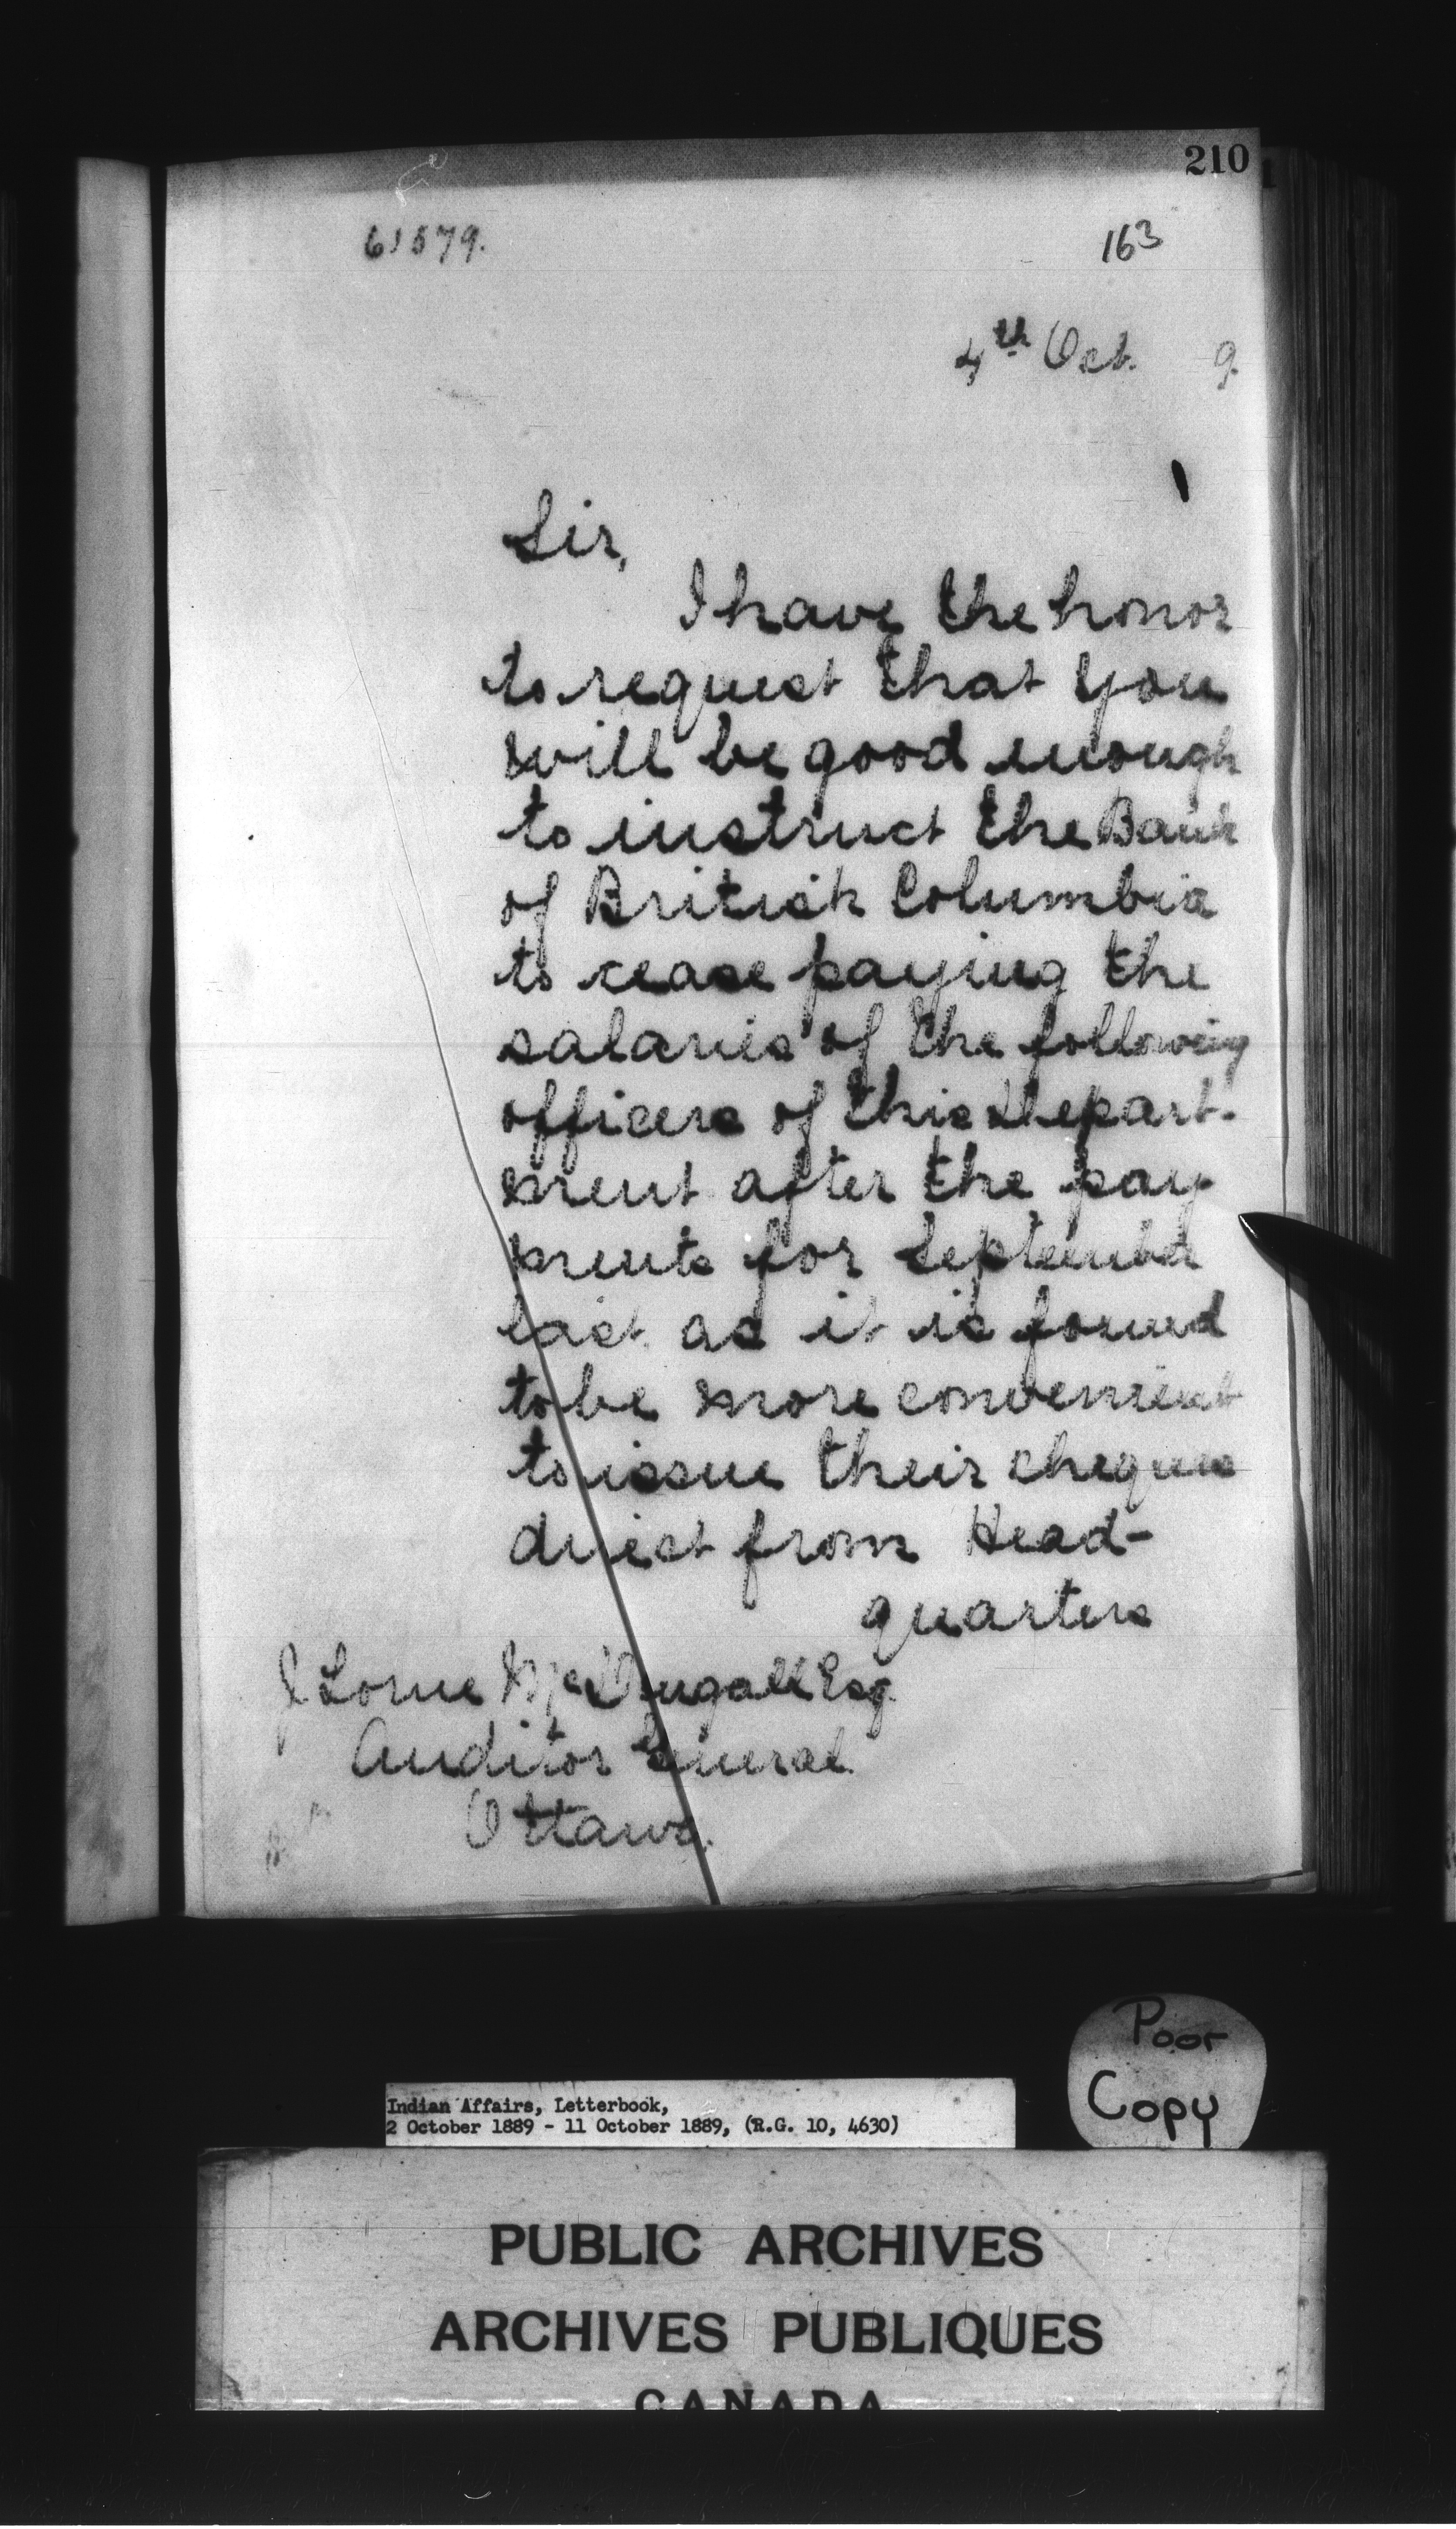 210
61579.
163
4th Oct. 9.
Sir,
I have the honor
to request that you
will be good enough
to instruct the Bank
of British Columbia
to cease paying the
salaries of the following
officers of this Depart-
ment after the pay
ments for September
last as it is found
to be more convenient
to issue their cheques
direct from Head-
quarters
J Lorne McDougall Esq.
Auditor General.
Ottawa.
Poor
Copy
Indian Affairs, Letterbook,
2 October 1889 - 11 October 1889, (R.G. 10, 4630)
PUBLIC ARCHIVES
ARCHIVES PUBLIQUES
CANADA